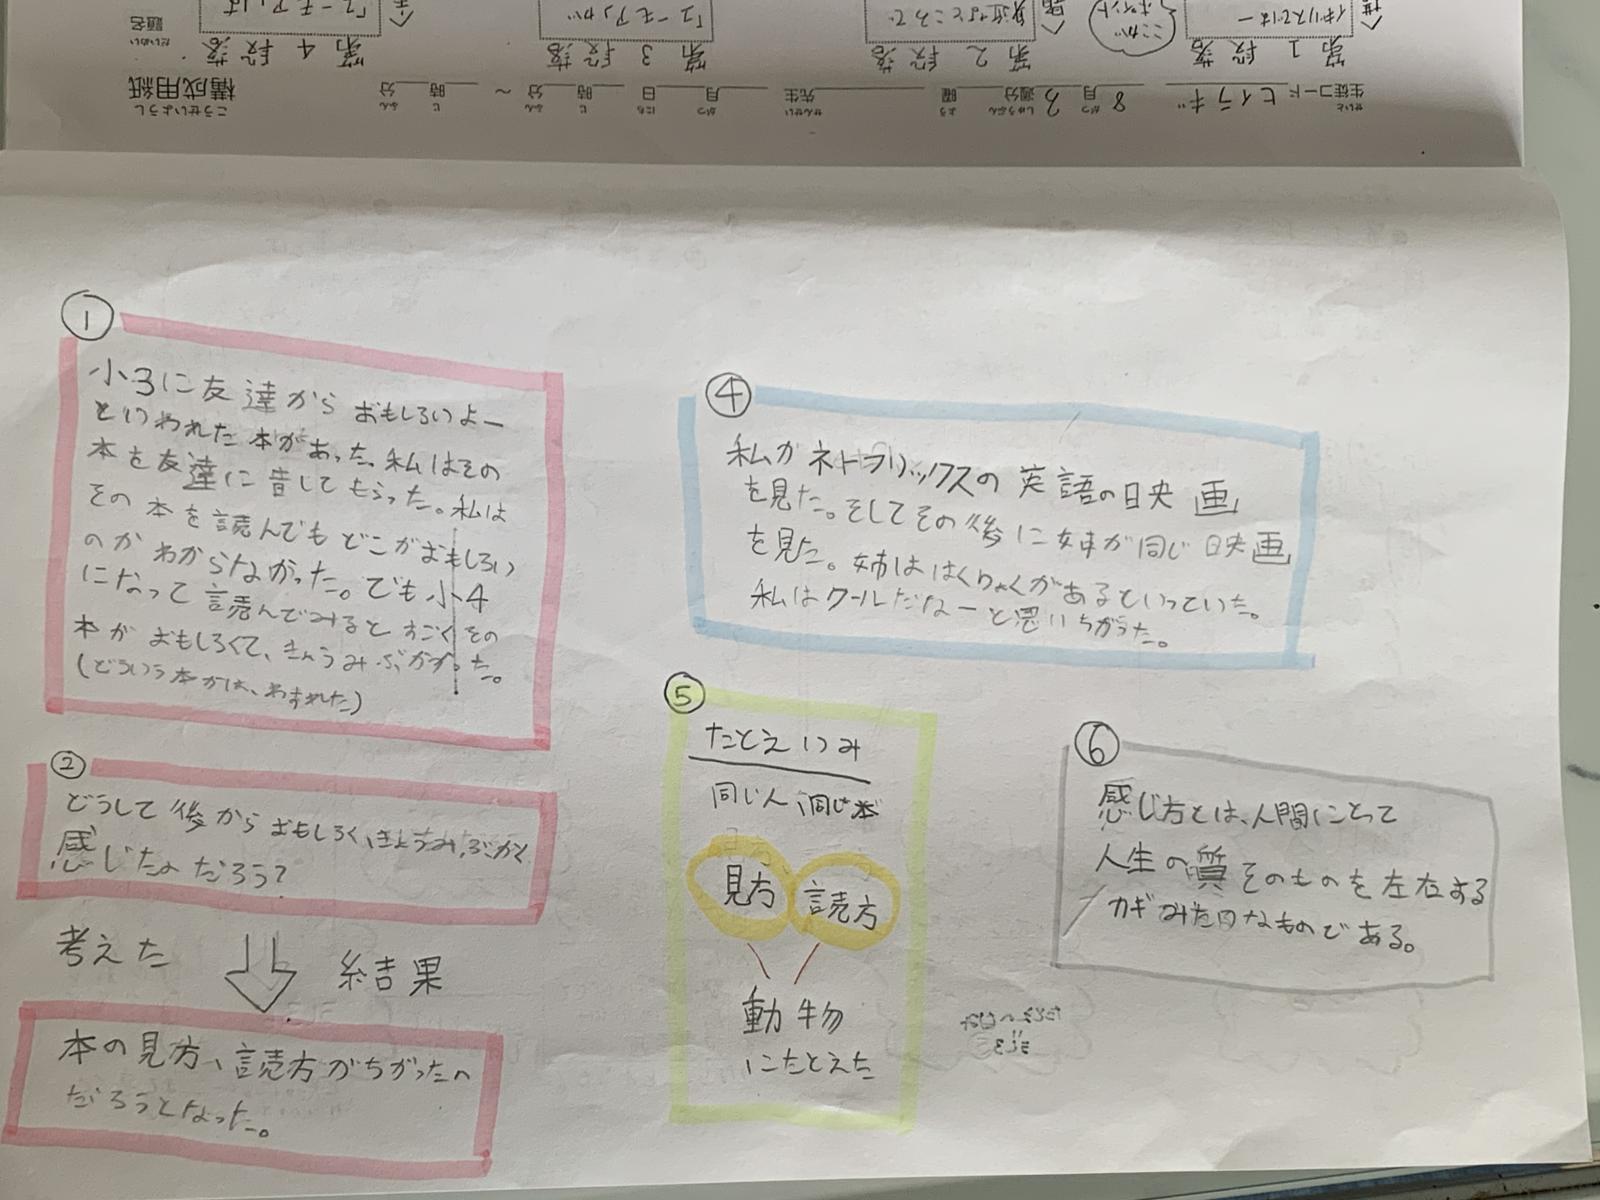 構成用紙
生徒コード ヒイラギ 8月 3週分 曜 先生 月 日 時 分 ～ 時 分
第1段落
第2段落
第3段落
第4段落
題名
イギリスでは一
ここがポイント
身近なところで
「ユーモア」が
「ユーモア」は
①
小3に友達からおもしろいよー
といわれた本があった。私はその
本を友達に昔してもらった。私は
その本を読んでもどこがおもしろい
のかわからなかった。でも小4
になって読んでみるとすごくその
本がおもしろくて、きょうみぶかかった。
(どういう本かは、わすれた)
②
どうして後からおもしろく、きょうみ、ぶかく
感じたのだろう?
考えた 結果
本の見方、読方がちがったん
だろうとなった。
④
私がネトフリックスの英語の映画
を見た。そしてその後に姉が同じ映画
を見た。姉ははくりょくがあるといっていた。
私はクールだなーと思いちがった。
⑤
たとえつみ
同じ人、同じ本
見方 読方
動物
にたとえた
⑥
感じ方とは、人間にとって
人生の質そのものを左右する
カギみたいなものである。